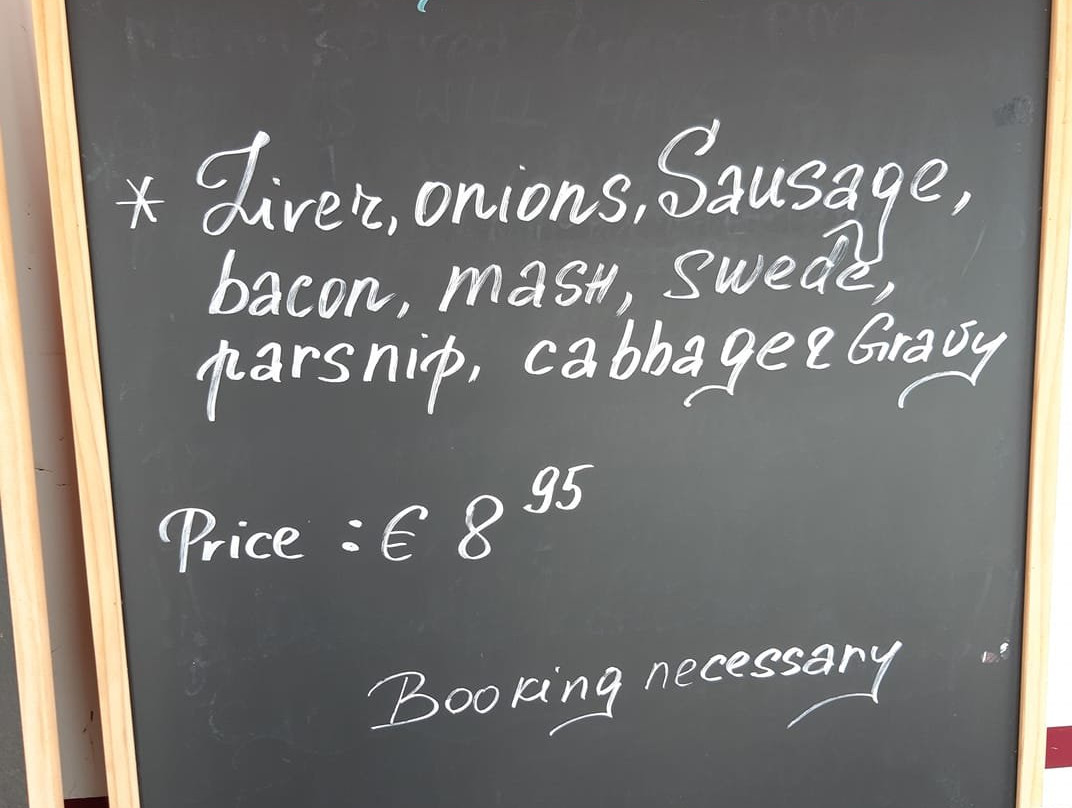 * Liver, onions, Sausage,
bacon, mash, swede,
parsnip, cabbage & Gravy
Price : € 8 95
Booking necessary